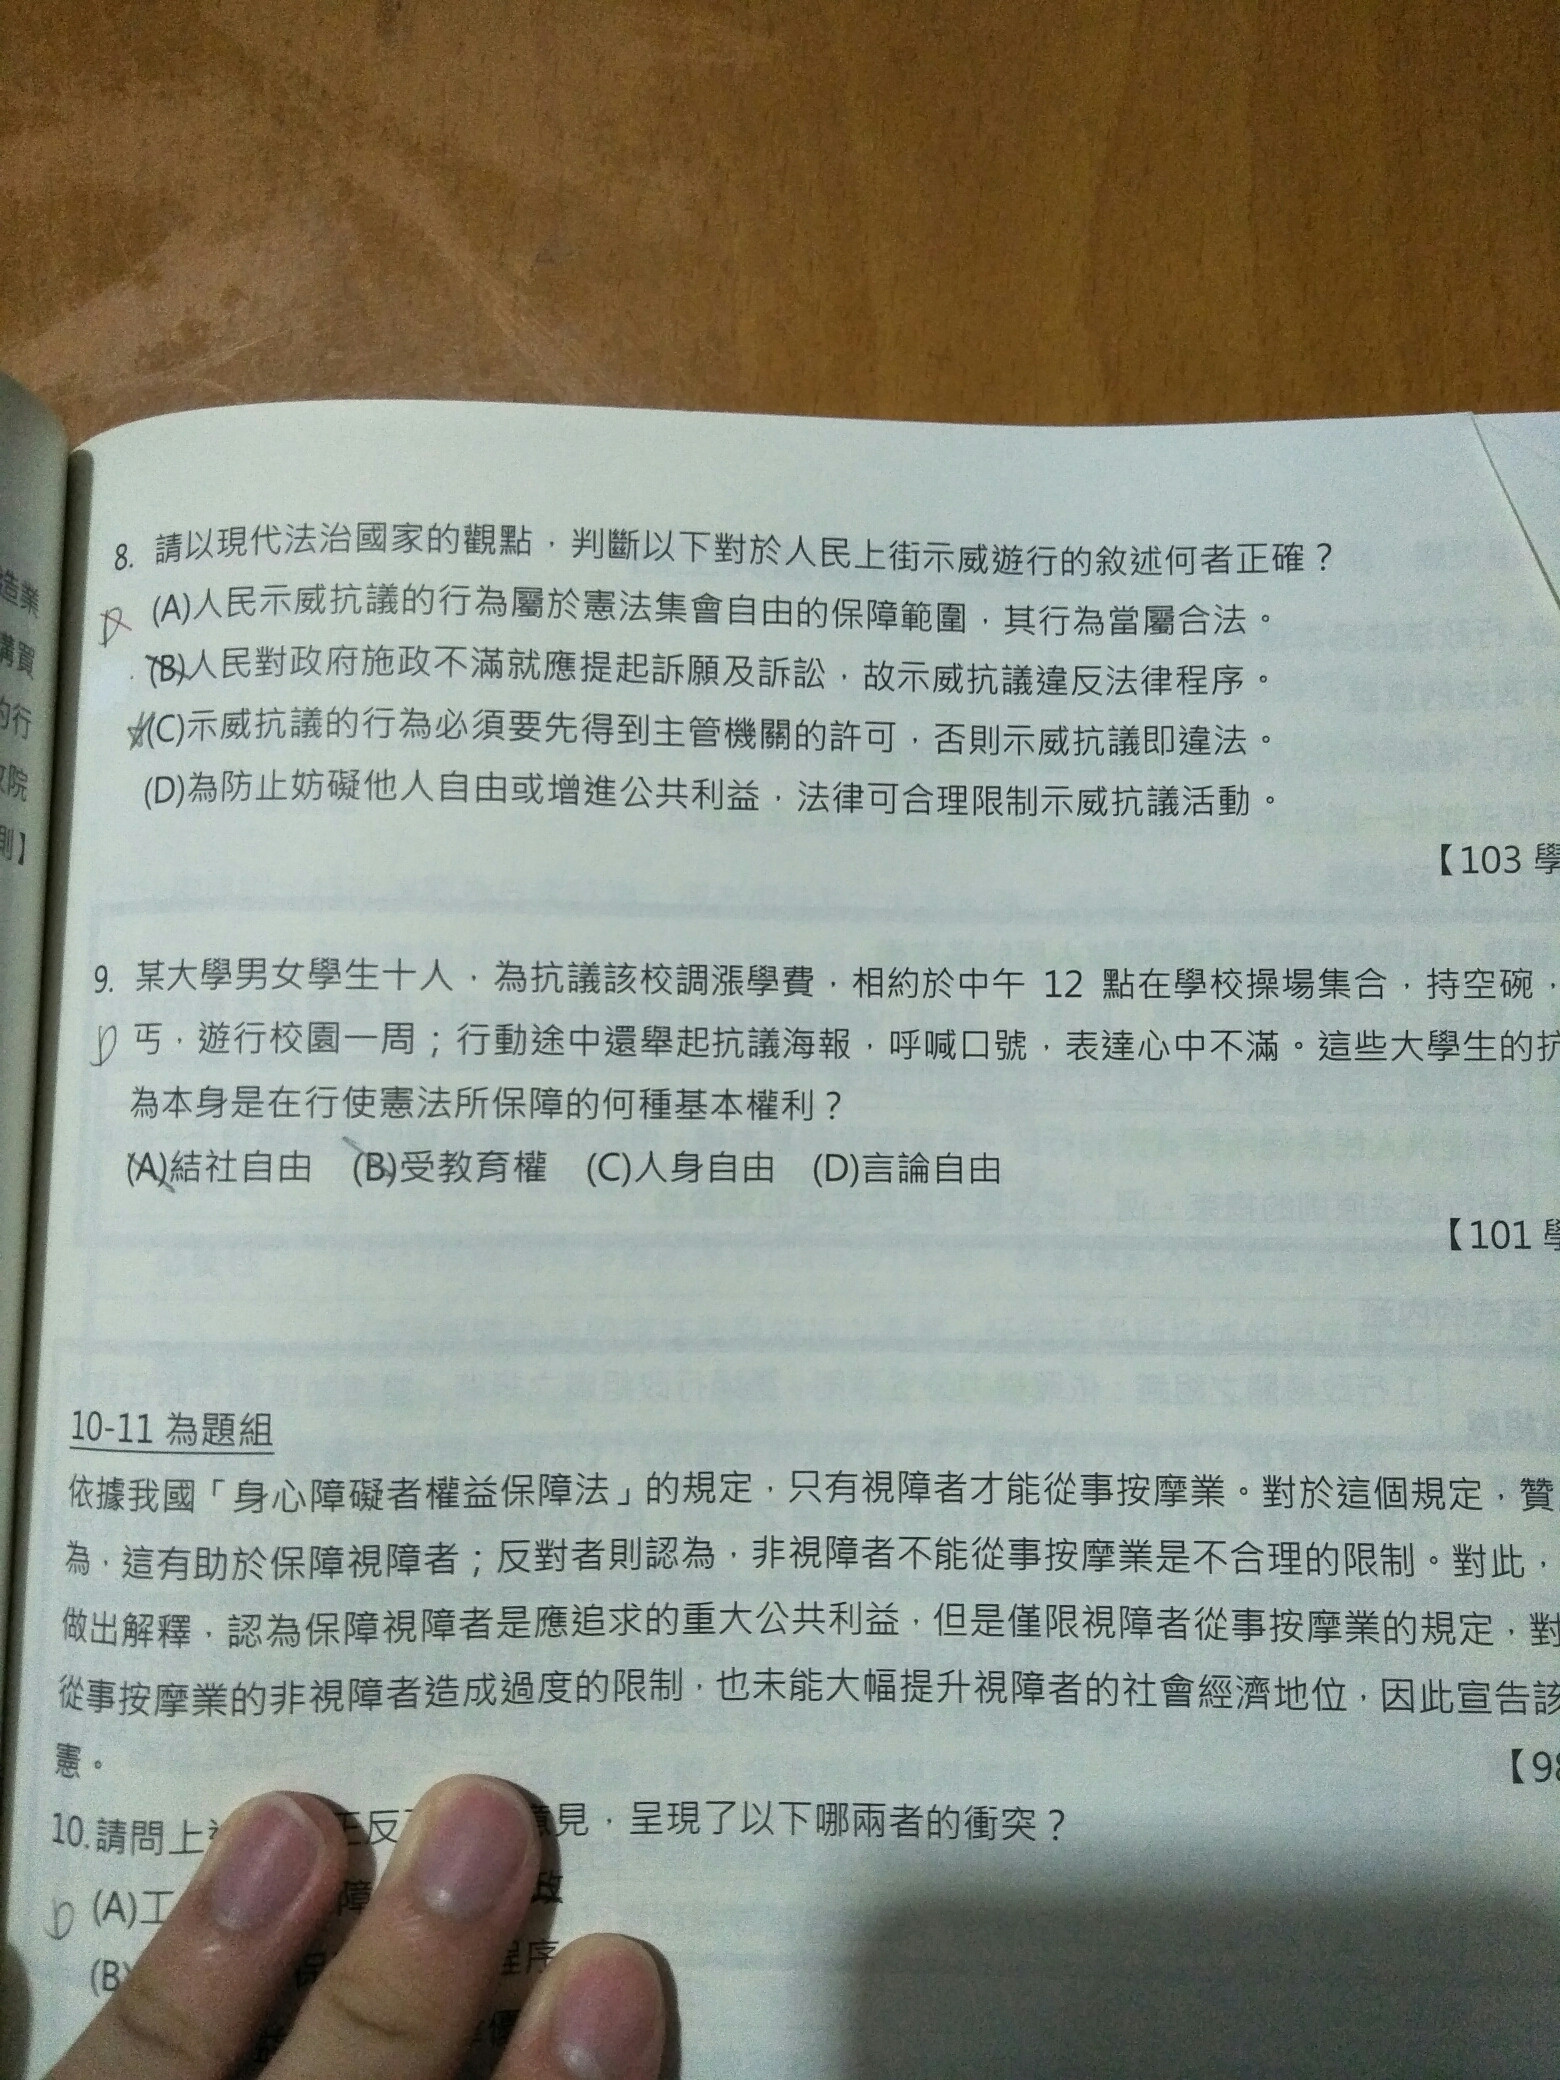 造業
購買
的行
政院
則】
8. 請以現代法治國家的觀點，判斷以下對於人民上街示威遊行的敘述何者正確？
(A)人民示威抗議的行為屬於憲法集會自由的保障範圍，其行為當屬合法。
D
(B)人民對政府施政不滿就應提起訴願及訴訟，故示威抗議違反法律程序。
(C)示威抗議的行為必須要先得到主管機關的許可，否則示威抗議即違法。
(D)為防止妨礙他人自由或增進公共利益，法律可合理限制示威抗議活動。
【103 學
9. 某大學男女學生十人，為抗議該校調漲學費，相約於中午 12 點在學校操場集合，持空碗，
D 丐，遊行校園一周；行動途中還舉起抗議海報，呼喊口號，表達心中不滿。這些大學生的抗
為本身是在行使憲法所保障的何種基本權利？
(A)結社自由 (B)受教育權 (C)人身自由 (D)言論自由
【101 學
10-11 為題組
依據我國「身心障礙者權益保障法」的規定，只有視障者才能從事按摩業。對於這個規定，贊
為，這有助於保障視障者；反對者則認為，非視障者不能從事按摩業是不合理的限制。對此，
做出解釋，認為保障視障者是應追求的重大公共利益，但是僅限視障者從事按摩業的規定，對
從事按摩業的非視障者造成過度的限制，也未能大幅提升視障者的社會經濟地位，因此宣告該
憲。
【98
10.請問上 正反 意見，呈現了以下哪兩者的衝突？
D (A)工 障 政
(B) 保 程序
益 優